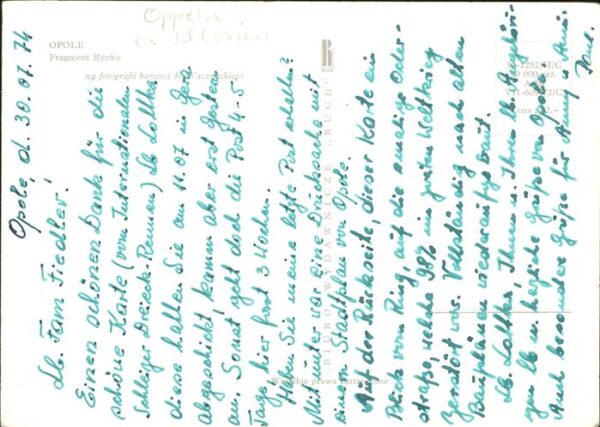 Oppeln
OPOLE
Fragment Rynku
wg fotografii barwnej K. Kaczyńskiego
BIURO WYDAWNICZE „RUCH”
Wszelkie prawa zastrzeżone
Opole, d. 30.07.74
Lb. Fam Fiedler!
Einen schönen Dank für die
schöne Karte (vom Internationalen
Schleizer Dreieck-Rennen) Lb Lothka,
diese hatten Sie am 11.07 in Gera
abgeschickt, kam aber erst gestern
an. Sonst geht doch die Post 4-5
Tage hier fast 3 Wochen.
Haben Sie meine letzte Post erhalten?
Mit unter war eine Drucksache mit
einem Stadtplan von Opole.
Auf der Rückseite, dieser Karte ein
Blick vom Ring, auf die emalige Oder-
straße, welche 98% im zweiten Weltkrieg
zerstört war. Vollständig nach alten
Bauplänen wieder aufgebaut.
Lb. Lothka, Ihnen u. Ihren lb. Angehöri-
gen lb u. herzliche Grüße von Opole.
Auch besonder Grüße für Anny v. Ani